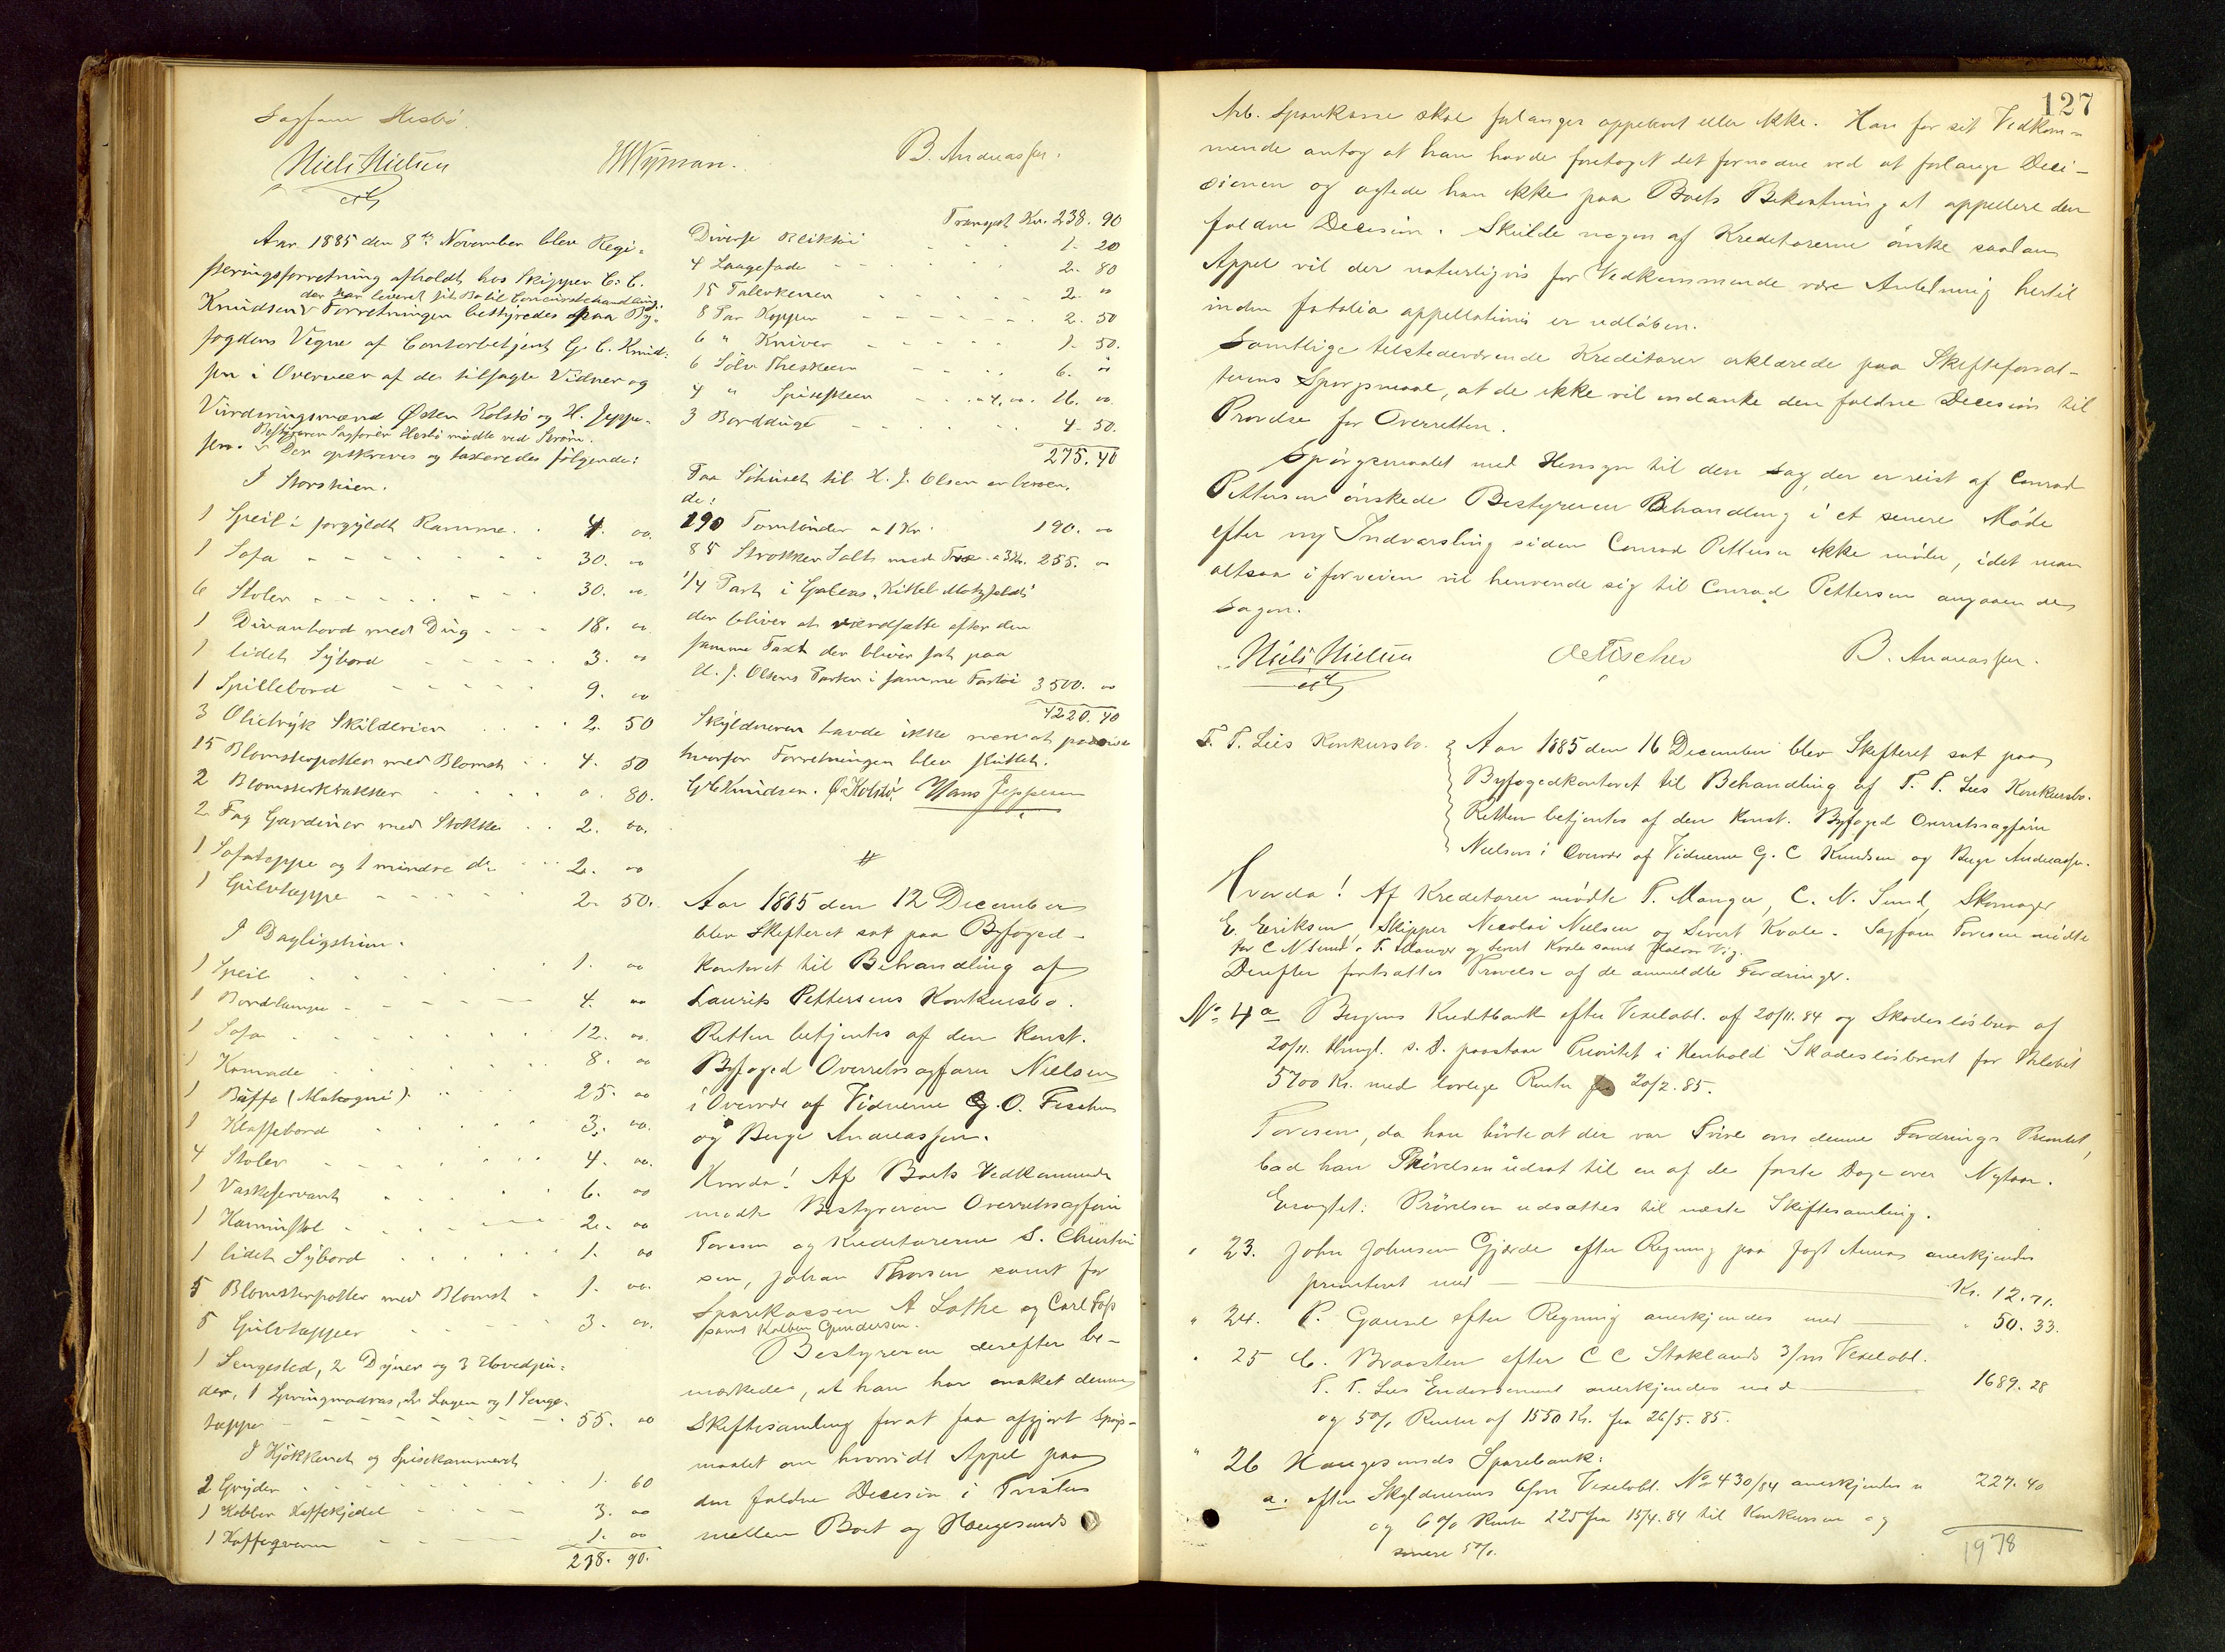 Sagfører Hesbö.
Niels Nielsen
W Nyman.
B. Andreassen.
Aar 1885 den 8de November blev Regi-
streringsforretning afholdt hos Skipper C. C.
Knudsen der har leveret sit Bo til Concursbehandling.
Forretningen bestyredes paa By-
fogdens Vegne af Contorbetjent G. C. Knud-
sen i Overvær af de tilsagte Vidner og
Vurderingsmænd Østen Kolstö og H. Jeppe-
sen. Bestyreren Sagfører Hesbö mödte ved Serömi.
Der opskreves og taxeredes fölgende:
I Storstuen.
1 Speil i forgyldt Ramme . 4. 00.
1 Sofa - - - 30. 00
6 Stoler - - - 30. 00.
1 Divanbord med Dug - - - 18. 00
1 lidet Sybord - - - 3. 00
1 Spillebord - - - 9. 00
3 Olietryk Skilderier . . . 2. 50
15 Blomsterpotter med Blomst . . 4. 50
2 Blomsterkrakker . . . 0. 80.
2 Fag Gardiner med Stokke . . 2. 00.
1 Sofatæppe og 1 mindre do . . 2. 00
1 Gulvtæppe - - - 2. 50.
I Dagligstuen.
1 Speil . . . 1. 00
1 Bordlampe - - - 4. 00
1 Sofa . . . 12. 00.
1 Komode . . . 8. 00
1 Buffe (Mahogni) . . . 25. 00
1 Klaffebord . . . 3. 00.
4 Stoler . . . 4. 00.
1 Vaskeservant . . . 6. 00
1 Kaminstol . . . 2. 00
1 lidet Sybord . . . 1. 00
5 Blomsterpotter med Blomst . 1. 00.
5 Gulvtæpper . . . 3. 00.
1 Sengested, 2 Dyner og 3 Hovedpu-
der, 1 Springmadras, 2 Lagen og 1 Senge-
tæppe - - - 55. 00
I Kjökkenet og Spisekammeret
2 Gryder . . . 1. 60
1 Kobber Kaffekjedel - - - 3. 00
1 Kaffeqværn - - - 1. 00
238. 90.
Transport Kr. 238. 90
Diverse Bliktöi - - - 1. 20
4 Laugefade - - - 2. 80
15 Talerkener - - - 2. 00
8 Par Kopper - - - 2. 50
6 " Kniver - - - 1. 50.
6 Sölv Theskeer - - - 6. 00
4 " Spiseskeer - - a 4,00. 16. 00.
3 Bordduge - - - 4. 50.
275. 40
Paa Söhuset til H. J. Olsen er beroen-
de:
190 Tomtönder a 1 Kr. 190. 00
85 Strokker Salt med Træ . a 3 Kr. 255. 00
1/4 Part i Galeas "Kittel Motzfeldt"
der bliver at værdsætte efter den
samme Taxt der bliver sat paa
H. J. Olsens Parter i samme Fartöi 3500. 00
4220. 40
Skyldneren havde ikke mere at paavise
hvorfor Forretningen blev sluttet.
G C Knudsen. Ø. Kolstö. Hans Jeppesen
Aar 1885 den 12 December
blev Skifteret sat paa Byfoged-
kontoret til Behandling af
Laurits Pettersens Konkursbo.
Retten betjentes af den konst.
Byfoged Overretssagfører Nielsen
i Overvær af Vidnerne O. Fischer
og Berge Andreassen.
Hvorda! Af Boets Vedkommende
mødte Bestyreren Overretssagfører
Toresen og Kreditorerne S. Christen
sen, Johan Thorsen samt for
Sparekassen A Lothe og Carl Foss
samt Kolben Gundersen.
Bestyreren derefter be-
mærkede, at han har ønsket denne
Skiftesamling for at faa afgjort Spörs-
maalet om hvorvidt Appel paa
den faldne Decision i Tvisten
mellem Boet og Haugesunds
127
Arb. Sparekasse skal forlanges appeleret eller ikke. Han for sit Vedkom-
mende antog at han havde foretaget det fornødne ved at forlange Deci-
sionen og agtede han ikke paa Boets Bekostning at appellere den
faldne Decision. Skulde nogen af Kreditorerne önske saadan
Appel vil der naturligvis for Vedkommende være Anledning hertil
inden fatalia appellationis er udlöben.
Samtlige tilstedeværende Kreditorer erklærede paa Skifteforval-
terens Spörgsmaal, at de ikke vil indanke den faldne Decision til
Prøvelse for Overretten.
Spörgsmaalet med Hensyn til den Sag, der er reist af Conrad
Pettersen önskede Bestyreren Behandling i et senere Møde
efter ny Indvarsling siden Conrad Pettersen ikke möter, idet man
altsaa i forveien vil henvende sig til Conrad Pettersen angaaende
Sagen.
Niels Nielsen
O Fischer
B. Andreassen.
T. T. Lies Konkursbo.
Aar 1885 den 16 December blev Skifteret sat paa
Byfogedkontoret til Behandling af T. T. Lies Konkursbo.
Retten betjentes af den konst. Byfoged Overretssagfører
Nielsen i Overvær af Vidnerne G. C Knudsen og Berge Andreassen.
Hvorda! Af Kreditorer mødte T. Manger, C. N. Sund, Skomager
E. Eriksen, Skipper Nicolai Nielsen og Sivert Kvale. Sagfører Toresen mødte
for C N Sund, T. Manger og Sivert Kvale samt Halvor Vig.
Derefter fortsattes Prøvelse af de anmeldte Fordringer.
No 4 a Bergens Kreditbank efter Vexelobl. af 20/11. 84 og Skadeslösbrev af
20/11. thingl. s. D. paastaar Prioritet i Henhold Skadeslösbrevet for Beløbet
5700 Kr. med lovlige Renter fra 20/2. 85.
Toresen, da han hörte at der var Tvivl om denne Fordrings Prioritet,
bad han Prövelsen udsat til en af de første Dage over Nytaar.
Eragtet: Prövelsen udsættes til næste Skiftesamling.
" 23. John Johnsen Gjerde efter Regning paa Jagt Anna anerkjendes
prioriteret med — Kr. 12.71.
" 24. P. Gause efter Regning anerkjendes med — " 50. 33.
" 25 C. Braasten efter C C Stoklands 3/m Vexelobl.
T. T. Lies Endossement anerkjendes med — 1689. 28
og 5% Renter af 1550 Kr. fra 26/5. 85.
" 26 Haugesunds Sparebank:
a. efter Skyldnerens 6/m Vexelobl. No 430/84 anerkjendes " 227. 40
og 6% Rente 225 fra 15/4. 84 til Konkursen og
senere 5%.
1978